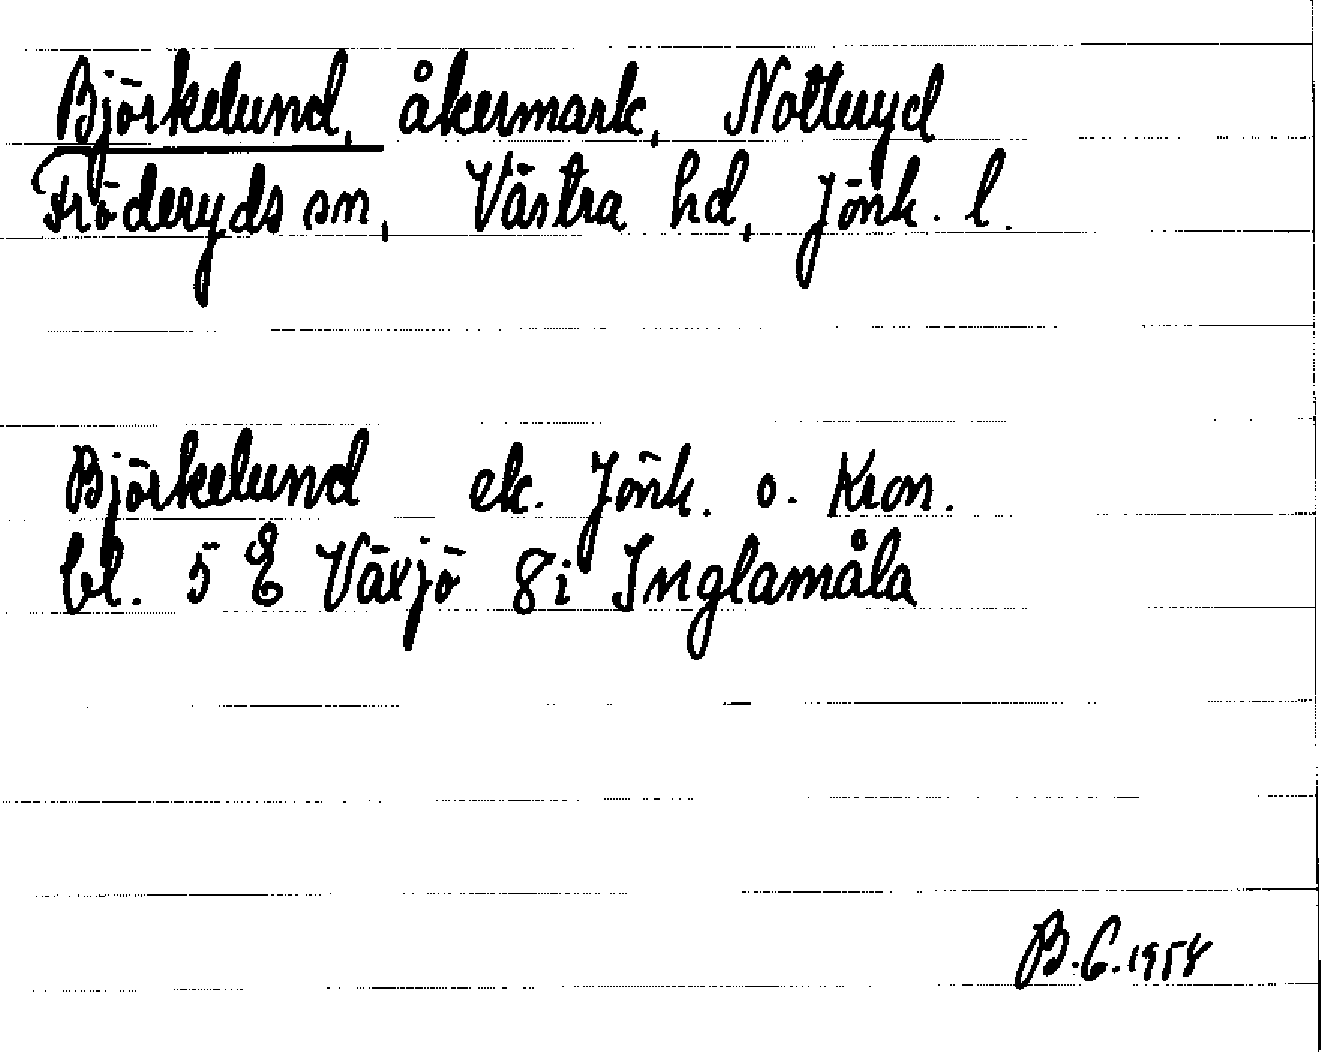 Björkelund, åkermark, Notteryd
Fröderyds sn, Västra hd, Jönk. l.
Björkelund ek. Jönk. o. Kron.
bl. 5 E Växjö 8i Inglamåla
B.C. 1958